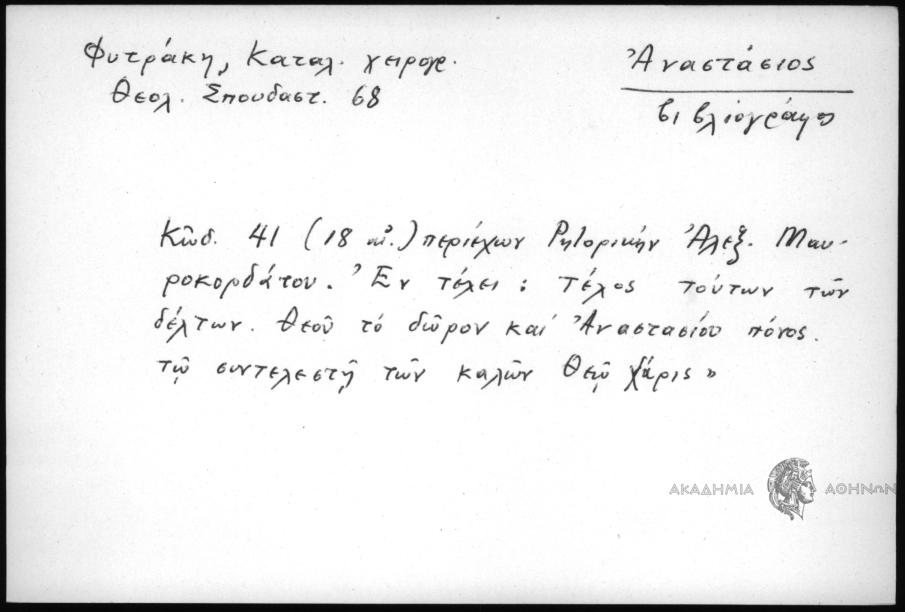 Φυτράκη, Καταλ. χειρογρ.
Θεολ. Σπουδαστ. 68
Ἀναστάσιος
βιβλιογράφος
Κῶδ. 41 (18 αἰ.) περιέχων Ρητορικὴν Ἀλεξ. Μαυ-
ροκορδάτου. Ἐν τέλει: τέλος τούτων τῶν
δέλτων. Θεοῦ τό δῶρον καί Ἀναστασίου πόνος.
τῷ συντελεστῇ τῶν καλῶν Θεῷ χάρις»
ΑΚΑΔΗΜΙΑ ΑΘΗΝΩΝ